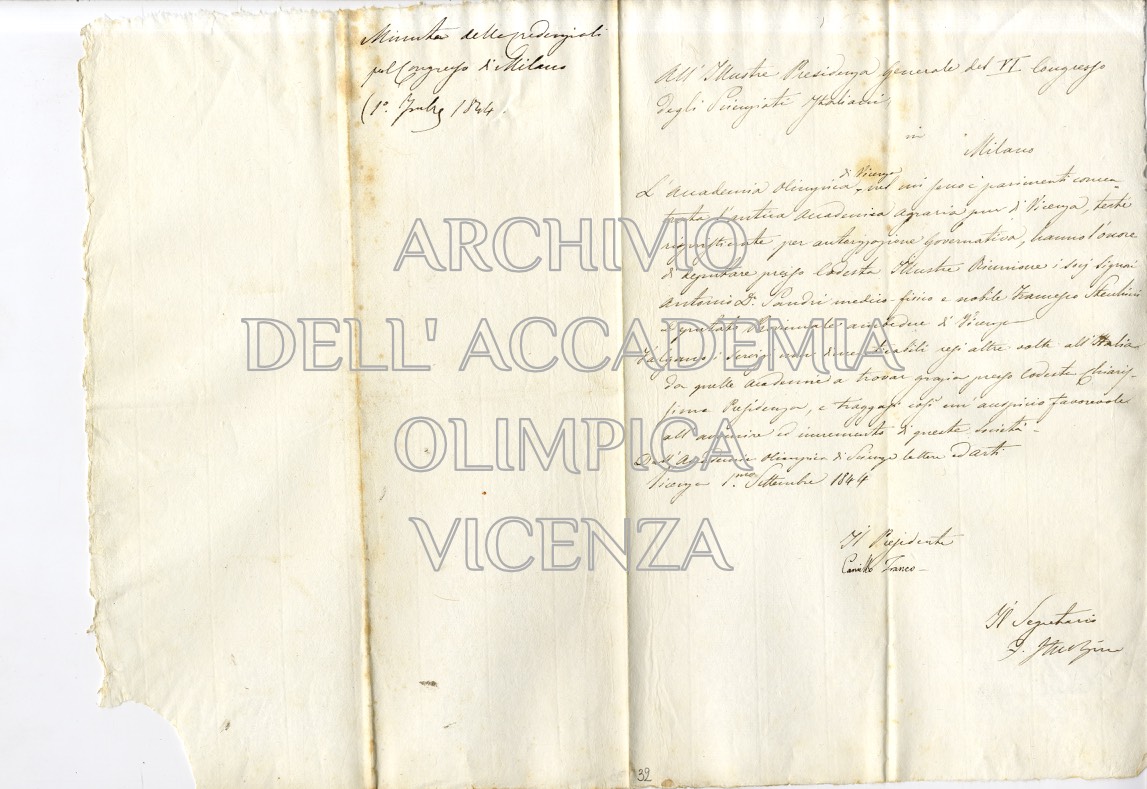 Minuta delle credenziali
pel Congresso di Milano
(1º. 7mbre 1844.
All' Illustre Presidenza Generale del VI Congresso
degli Scienziati Italiani,
in
Milano
di Vicenza
L'Accademia Olimpica, nel cui seno è parimenti concen
trata l'antica Accademia Agraria pur di Vicenza, testè
ripristinate per autorizzazione Governativa, hanno l'onore
di deputare presso codesta Illustre Riunione i socj signori
Antonio Dr. Sandri medico-fisico e nobile Francesco
deputato Provinciale ambedue di Vicenza
Valgano i servigi non dimenticabili resi altre volte all'Italia
da quelle Accademie a trovar grazia presso codesta chiaris-
sima Presidenza, e traggasi così un' auspicio favorevole
all' avvenire ed incremento di queste società-
Dall'Accademia Olimpica di Scienze lettere ed arti
Vicenza 1.mo Settembre 1844
Il Presidente
Camillo Franco-
Il Segretario
32
ARCHIVIO
DELL' ACCADEMIA
OLIMPICA
VICENZA